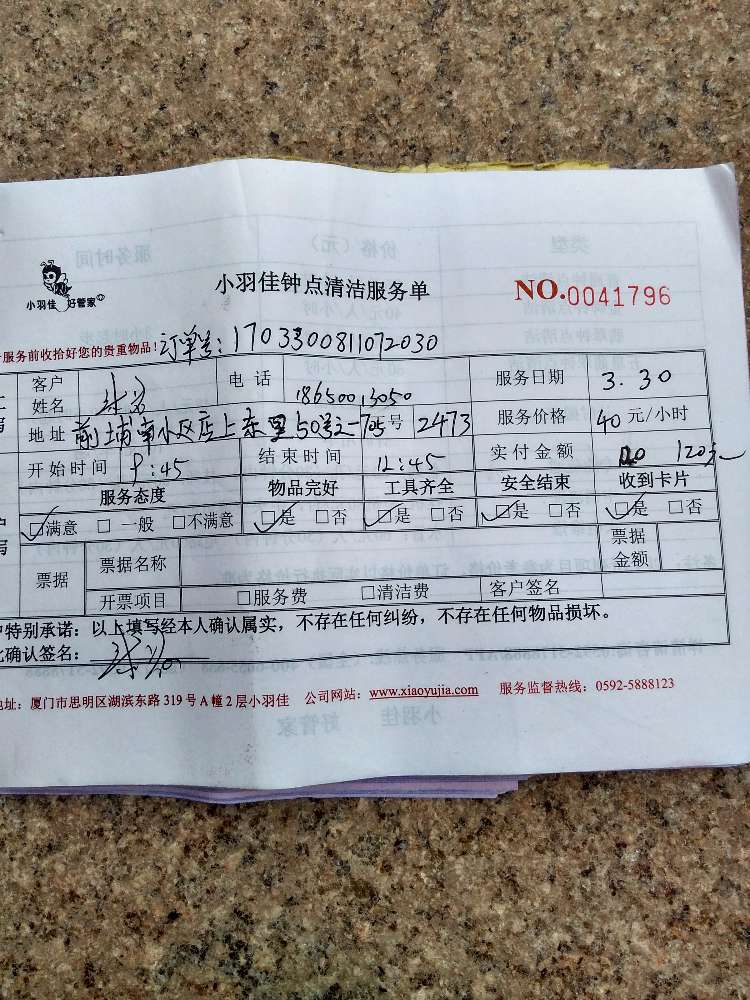 小羽佳 好管家
小羽佳钟点清洁服务单
NO.0041796
服务前收拾好您的贵重物品!订单号:1703300811072030
客户姓名 电话 18650013050 服务日期 3.30
地址 前埔南小区店上东里50号之一705 号 2473 服务价格 40元/小时
开始时间 9:45 结束时间 12:45 实付金额 120元
服务态度 物品完好 工具齐全 安全结束 收到卡片
☑满意 □一般 □不满意 ☑是 □否 ☑是 □否 ☑是 □否 ☑是 □否
票据 票据名称 票据金额
开票项目 □服务费 □清洁费 客户签名
户特别承诺:以上填写经本人确认属实,不存在任何纠纷,不存在任何物品损坏。
此确认签名:
地址:厦门市思明区湖滨东路319号A幢2层小羽佳 公司网站:www.xiaoyujia.com 服务监督热线:0592-5888123